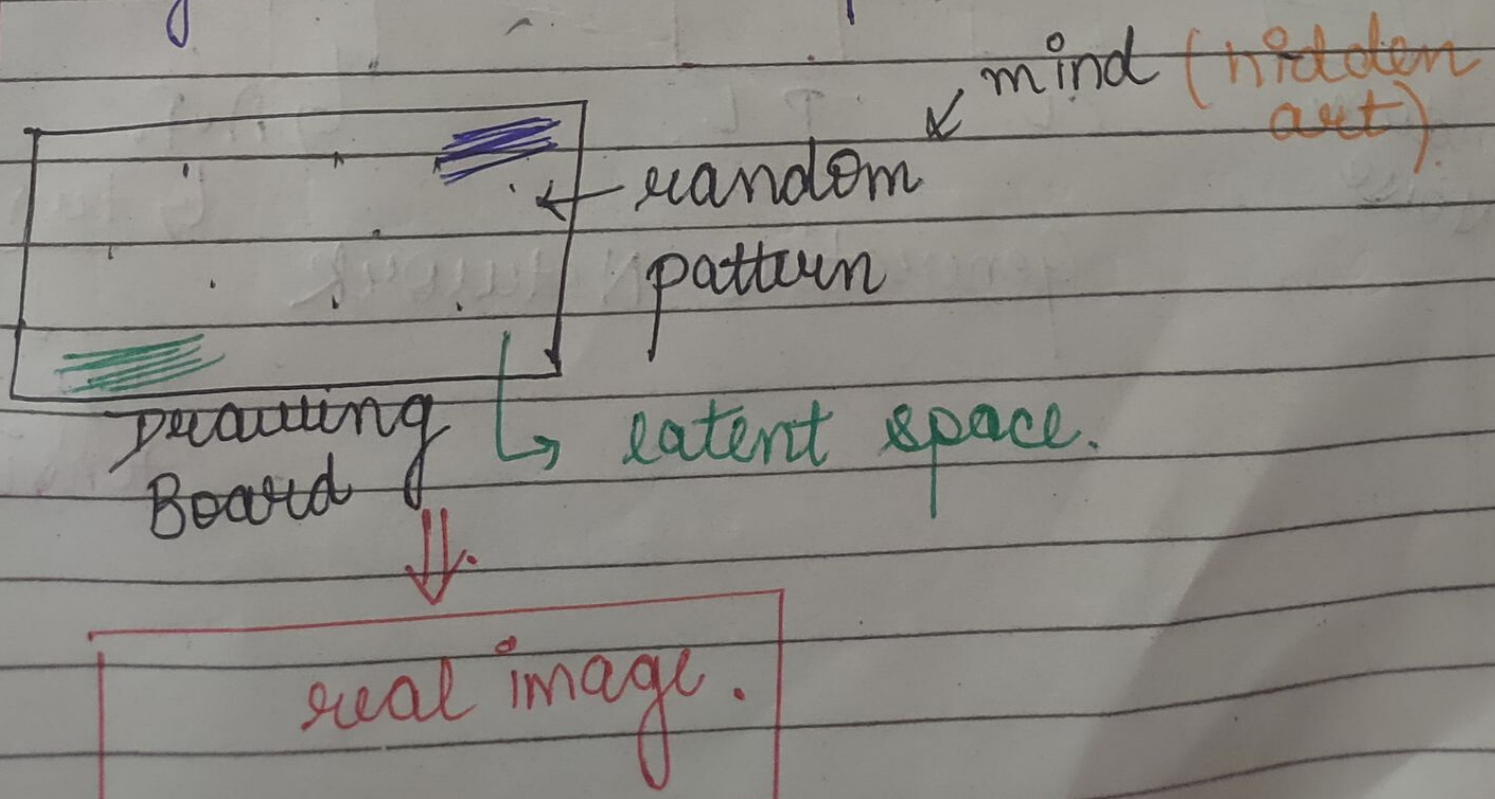 mind (hidden
art).
random
pattern
Drawing
Board
latent space.
real image.